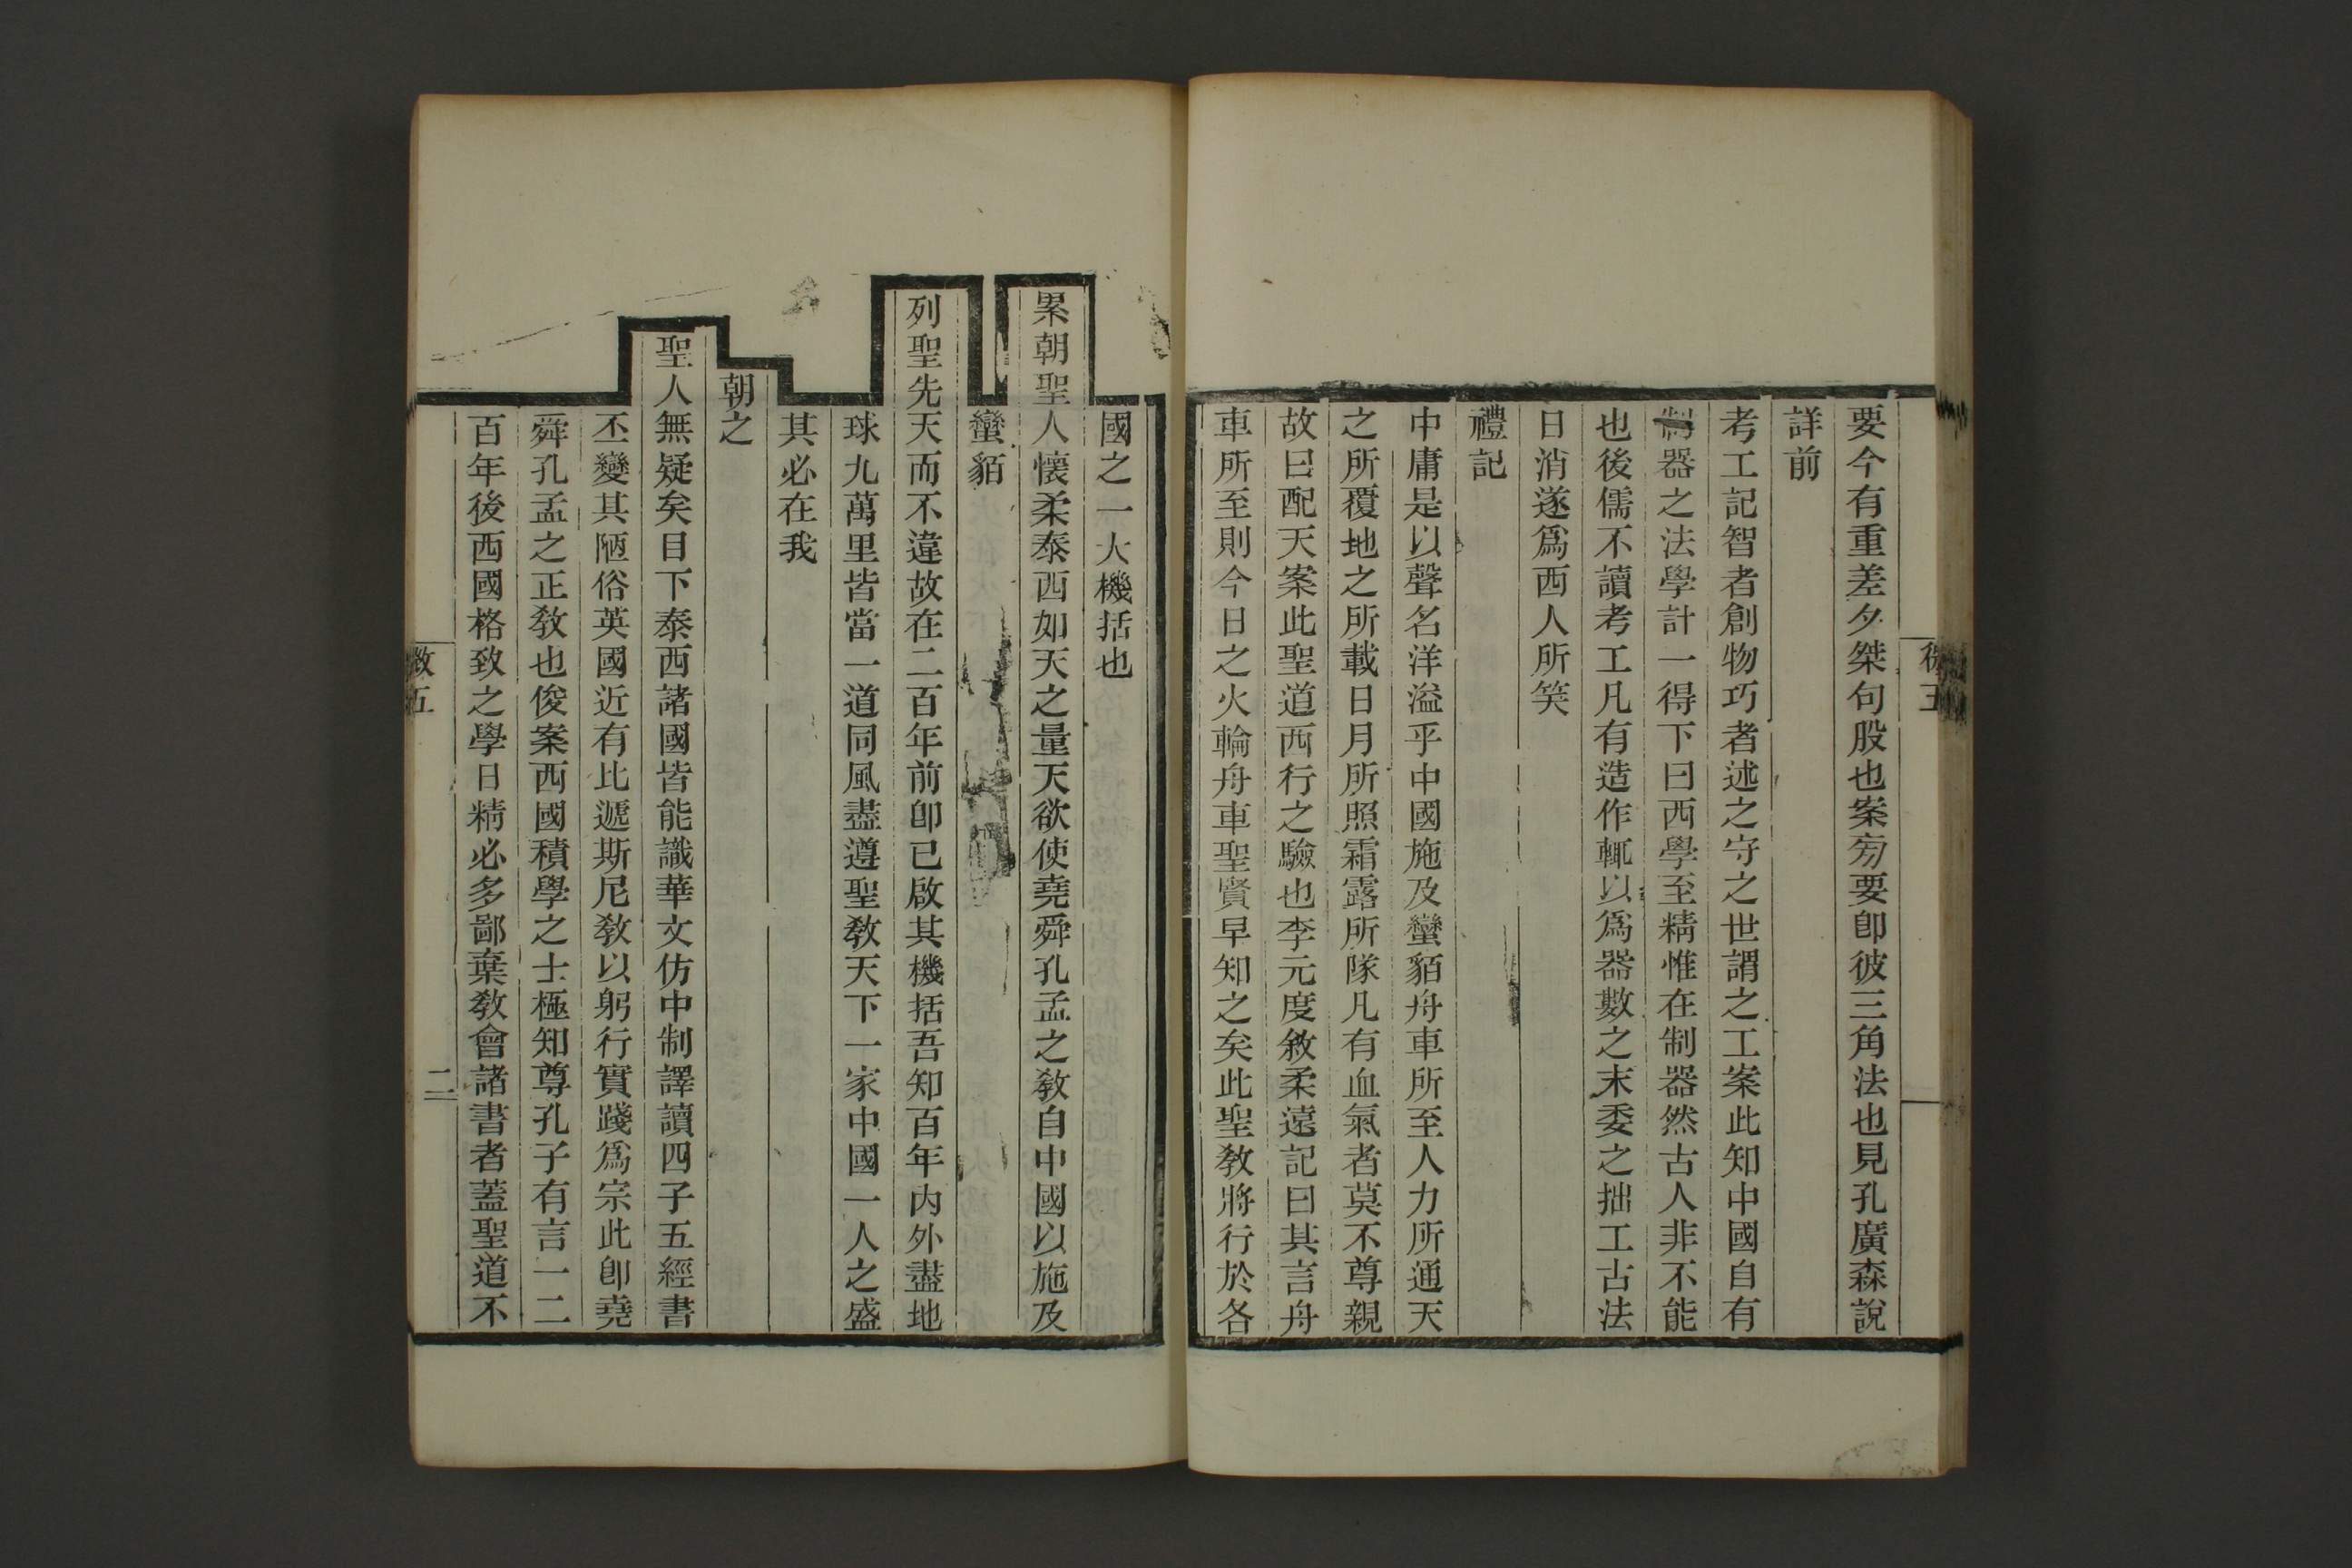 要今有重差夕桀句股也案旁要卽彼三角法也見孔廣森說
詳前
考工記智者創物巧者述之守之世謂之工案此知中國自有
制器之法學計一得下曰西學至精惟在制器然古人非不能
也後儒不讀考工凡有造作輒以爲器數之末委之拙工古法
日消遂爲西人所笑
禮記
中庸是以聲名洋溢乎中國施及蠻貊舟車所至人力所通天
之所覆地之所載日月所照霜露所隊凡有血氣者莫不尊親
故曰配天案此聖道西行之驗也李元度敘柔遠記曰其言舟
車所至則今日之火輪舟車聖賢早知之矣此聖敎將行於各
國之一大機括也
累朝聖人懷柔泰西如天之量天欲使堯舜孔孟之敎自中國以施及
蠻貊
列聖先天而不違故在二百年前卽已啟其機括吾知百年內外盡地
球九萬里皆當一道同風盡遵聖敎天下一家中國一人之盛
其必在我
朝之
聖人無疑矣目下泰西諸國皆能識華文仿中制譯讀四子五經書
丕變其陋俗英國近有比遞斯尼敎以躬行實踐爲宗此卽堯
舜孔孟之正敎也俊案西國積學之士極知尊孔子有言一二
百年後西國格致之學日精必多鄙棄敎會諸書者蓋聖道不
五
二